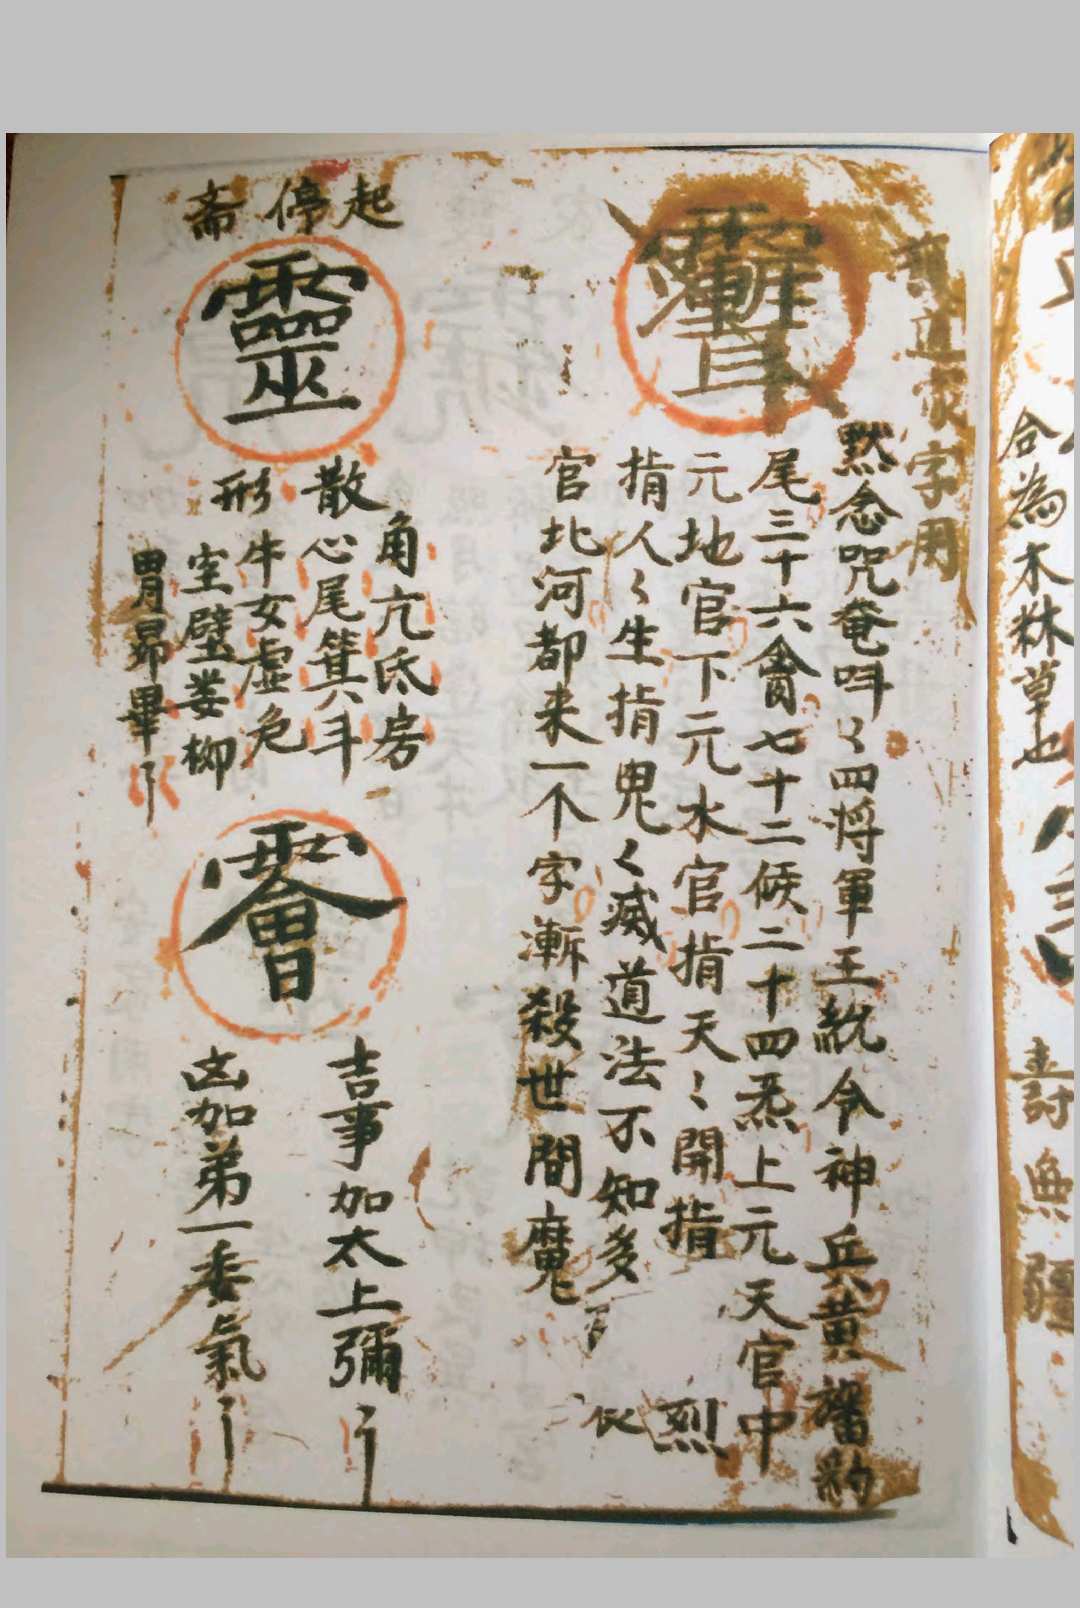 道家字用
默念咒奄吽〻四将軍王統令神兵黄旛豹
尾三十六禽七十二候二十四炁上元天官中
元地官下元水官指天〻開指
指人〻生指鬼〻滅道法不知多
官北河都来一个字漸殺世間魔
烈
起停斋
靈
散
形
角亢氐房
心尾箕斗
牛女虚危
室壁娄柳
胃昴畢
吉事加太上彌
凶加第一委氣
合為木秝草也
壽無疆